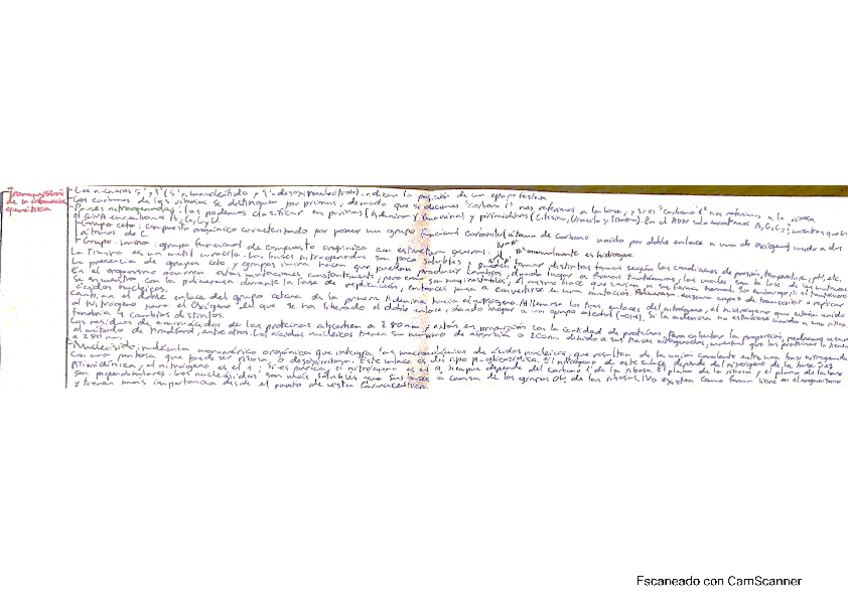 Transmisión de la información genética
- Los números 5' y 3' (5' ribonucleótido y 3' desoxirribonucleótido) indican la posición de un grupo fosfato
Los carbonos de las ribosas se distinguen por primas, de modo que si decimos "carbono 1" nos referimos a la base, y si es "carbono 1'" nos referimos a la ribosa
- Bases nitrogenadas: las podemos clasificar en purinas (Adenina y Guanina) y pirimidinas (Citosina, Uracilo y Timina). En el ADN sólo encontramos A, G, C, T; mientras que en
el RNA encontramos A, G, C, U
- Grupo ceto: compuesto orgánico caracterizado por poseer un grupo funcional carbonilo (átomo de carbono unido por doble enlace a uno de oxígeno) unido a dos
átomos de C.
- Grupo imino: grupo funcional de compuesto orgánico con estructura general: normalmente es hidrógeno
La Timina es un metil uracilo. Las bases nitrogenadas son poco solubles y pueden tomar distintas formas según las condiciones de presión, temperatura, pH, etc.
La presencia de grupos ceto y grupos imino hacen que puedan producir cambios, dando lugar a formas tautómeras, las cuales son la base de las mutaciones
En el organismo ocurren estas mutaciones constantemente, pero como son muy inestables, el mismo hace que vuelvan a su forma normal. Sin embargo, si el tautómero
se encuentra con la polimerasa durante la fase de replicación, entonces pasa a convertirse en una mutación. Polimerasa: enzima capaz de transcribir o replicar
ácidos nucleicos.
cambian el doble enlace del grupo cetona de la primera Adenina hacia el nitrógeno. Al tener los tres enlaces del nitrógeno, el hidrógeno que estaba unido
al Nitrógeno pasa al Oxígeno, el que se ha liberado el doble enlace, dando lugar a un grupo alcohol (-OH). Si la adenina no estuviese unida a una ribosa,
tendría 4 cambios distintos.
Los residuos de aminoácidos de las proteínas absorben a 280nm y están en proporción con la cantidad de proteínas. Para calcular la proporción, podemos usar
el método de Bradford, entre otros. Los ácidos nucleicos tienen su máximo de absorción a 260nm debido a sus bases nitrogenadas, mientras que las proteínas lo tienen
a 280nm.
- Nucleósido: molécula monomérica orgánica que integra las macromoléculas de ácidos nucleicos, que resultan de la unión covalente entre una base nitrogenada
con una pentosa que puede ser ribosa o desoxirribosa. Este enlace es de tipo glicosídico. El nitrógeno de este enlace depende del nitrógeno de la base: si es
pirimidínica, el nitrógeno es el 1; si es púrica, el nitrógeno es el 9. Siempre depende del carbono 1' de la ribosa. El plano de la ribosa y el plano de la base
son perpendiculares. Los nucleósidos son más solubles que sus bases a causa de los grupos OH de las ribosas. No existen como forma libre en el organismo
y tienen más importancia desde el punto de vista farmacéutico.
Escaneado con CamScanner